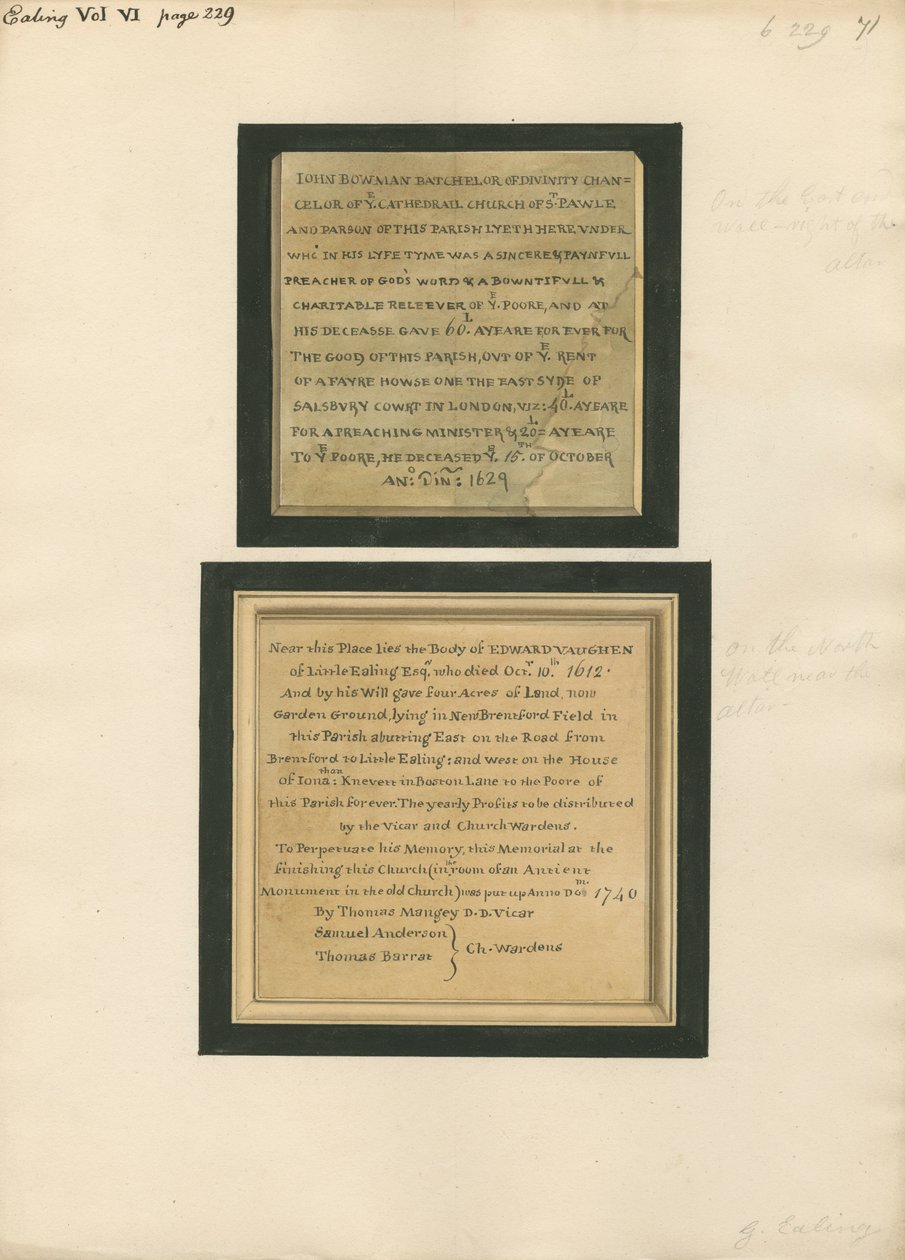 Ealing Vol VI page 229
6 229 71
IOHN BOWMAN BATCHELOR OF DIVINITY CHAN=
CELOR OF Y.E CATHEDRALL CHURCH OF S.T PAWLE
AND PARSON OF THIS PARISH LYETH HERE VNDER
WHO IN HIS LYFE TYME WAS A SINCERE & PAYNFVLL
PREACHER OF GOD'S WORD & A BOWNTIFVLL &
CHARITABLE RELEEVER OF Y.E POORE, AND AT
HIS DECEASSE GAVE 60.L AYEARE FOR EVER FOR
THE GOOD OF THIS PARISH, OVT OF Y.E RENT
OF A FAYRE HOWSE ONE THE EAST SYDE OF
SALSBVRY COWRT IN LONDON, VIZ: 40.L AYEARE
FOR A PREACHING MINISTER & 20=L AYEARE
TO Y.E POORE, HE DECEASED Y.E 15.TH OF OCTOBER
AN.o Dīn̄: 1629
On the East end
wall - right of the
altar
Near this Place lies the Body of EDWARD VAUGHEN
of Little Ealing Esq.r, who died Oct.r 10.th 1612.
And by his Will gave four Acres of Land, now
Garden Ground, lying in New Brentford Field in
this Parish abutting East on the Road from
Brentford to Little Ealing: and West on the House
of Iona:than Knevett in Boston Lane to the Poore of
this Parish forever. The yearly Profits to be distributed
by the Vicar and Church Wardens.
To Perpetuate his Memory, this Memorial at the
finishing this Church (in the room of an Antient
Monument in the old Church) was put up Anno Do.m 1740
By Thomas Mangey D.D. Vicar
Samuel Anderson
Thomas Barrat } Ch. Wardens
on the North
Wall near the
altar -
G. Ealing